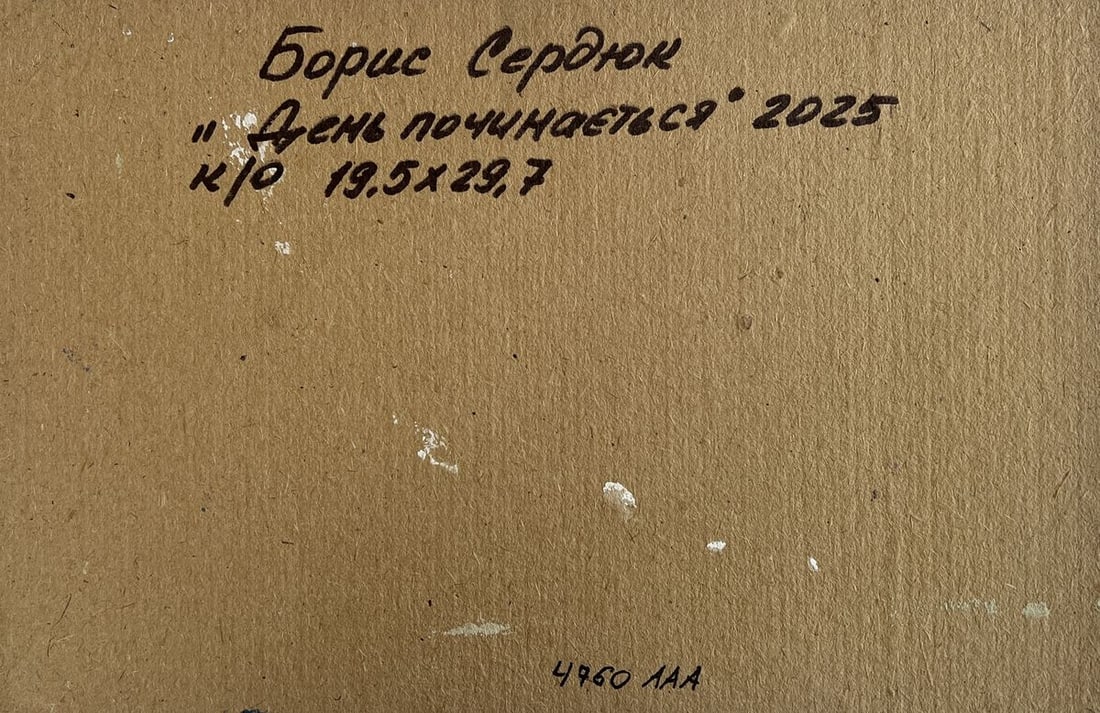 Борис Сердюк
"День починається" 2025
к/о 19,5х29,7
4760 ЛАА